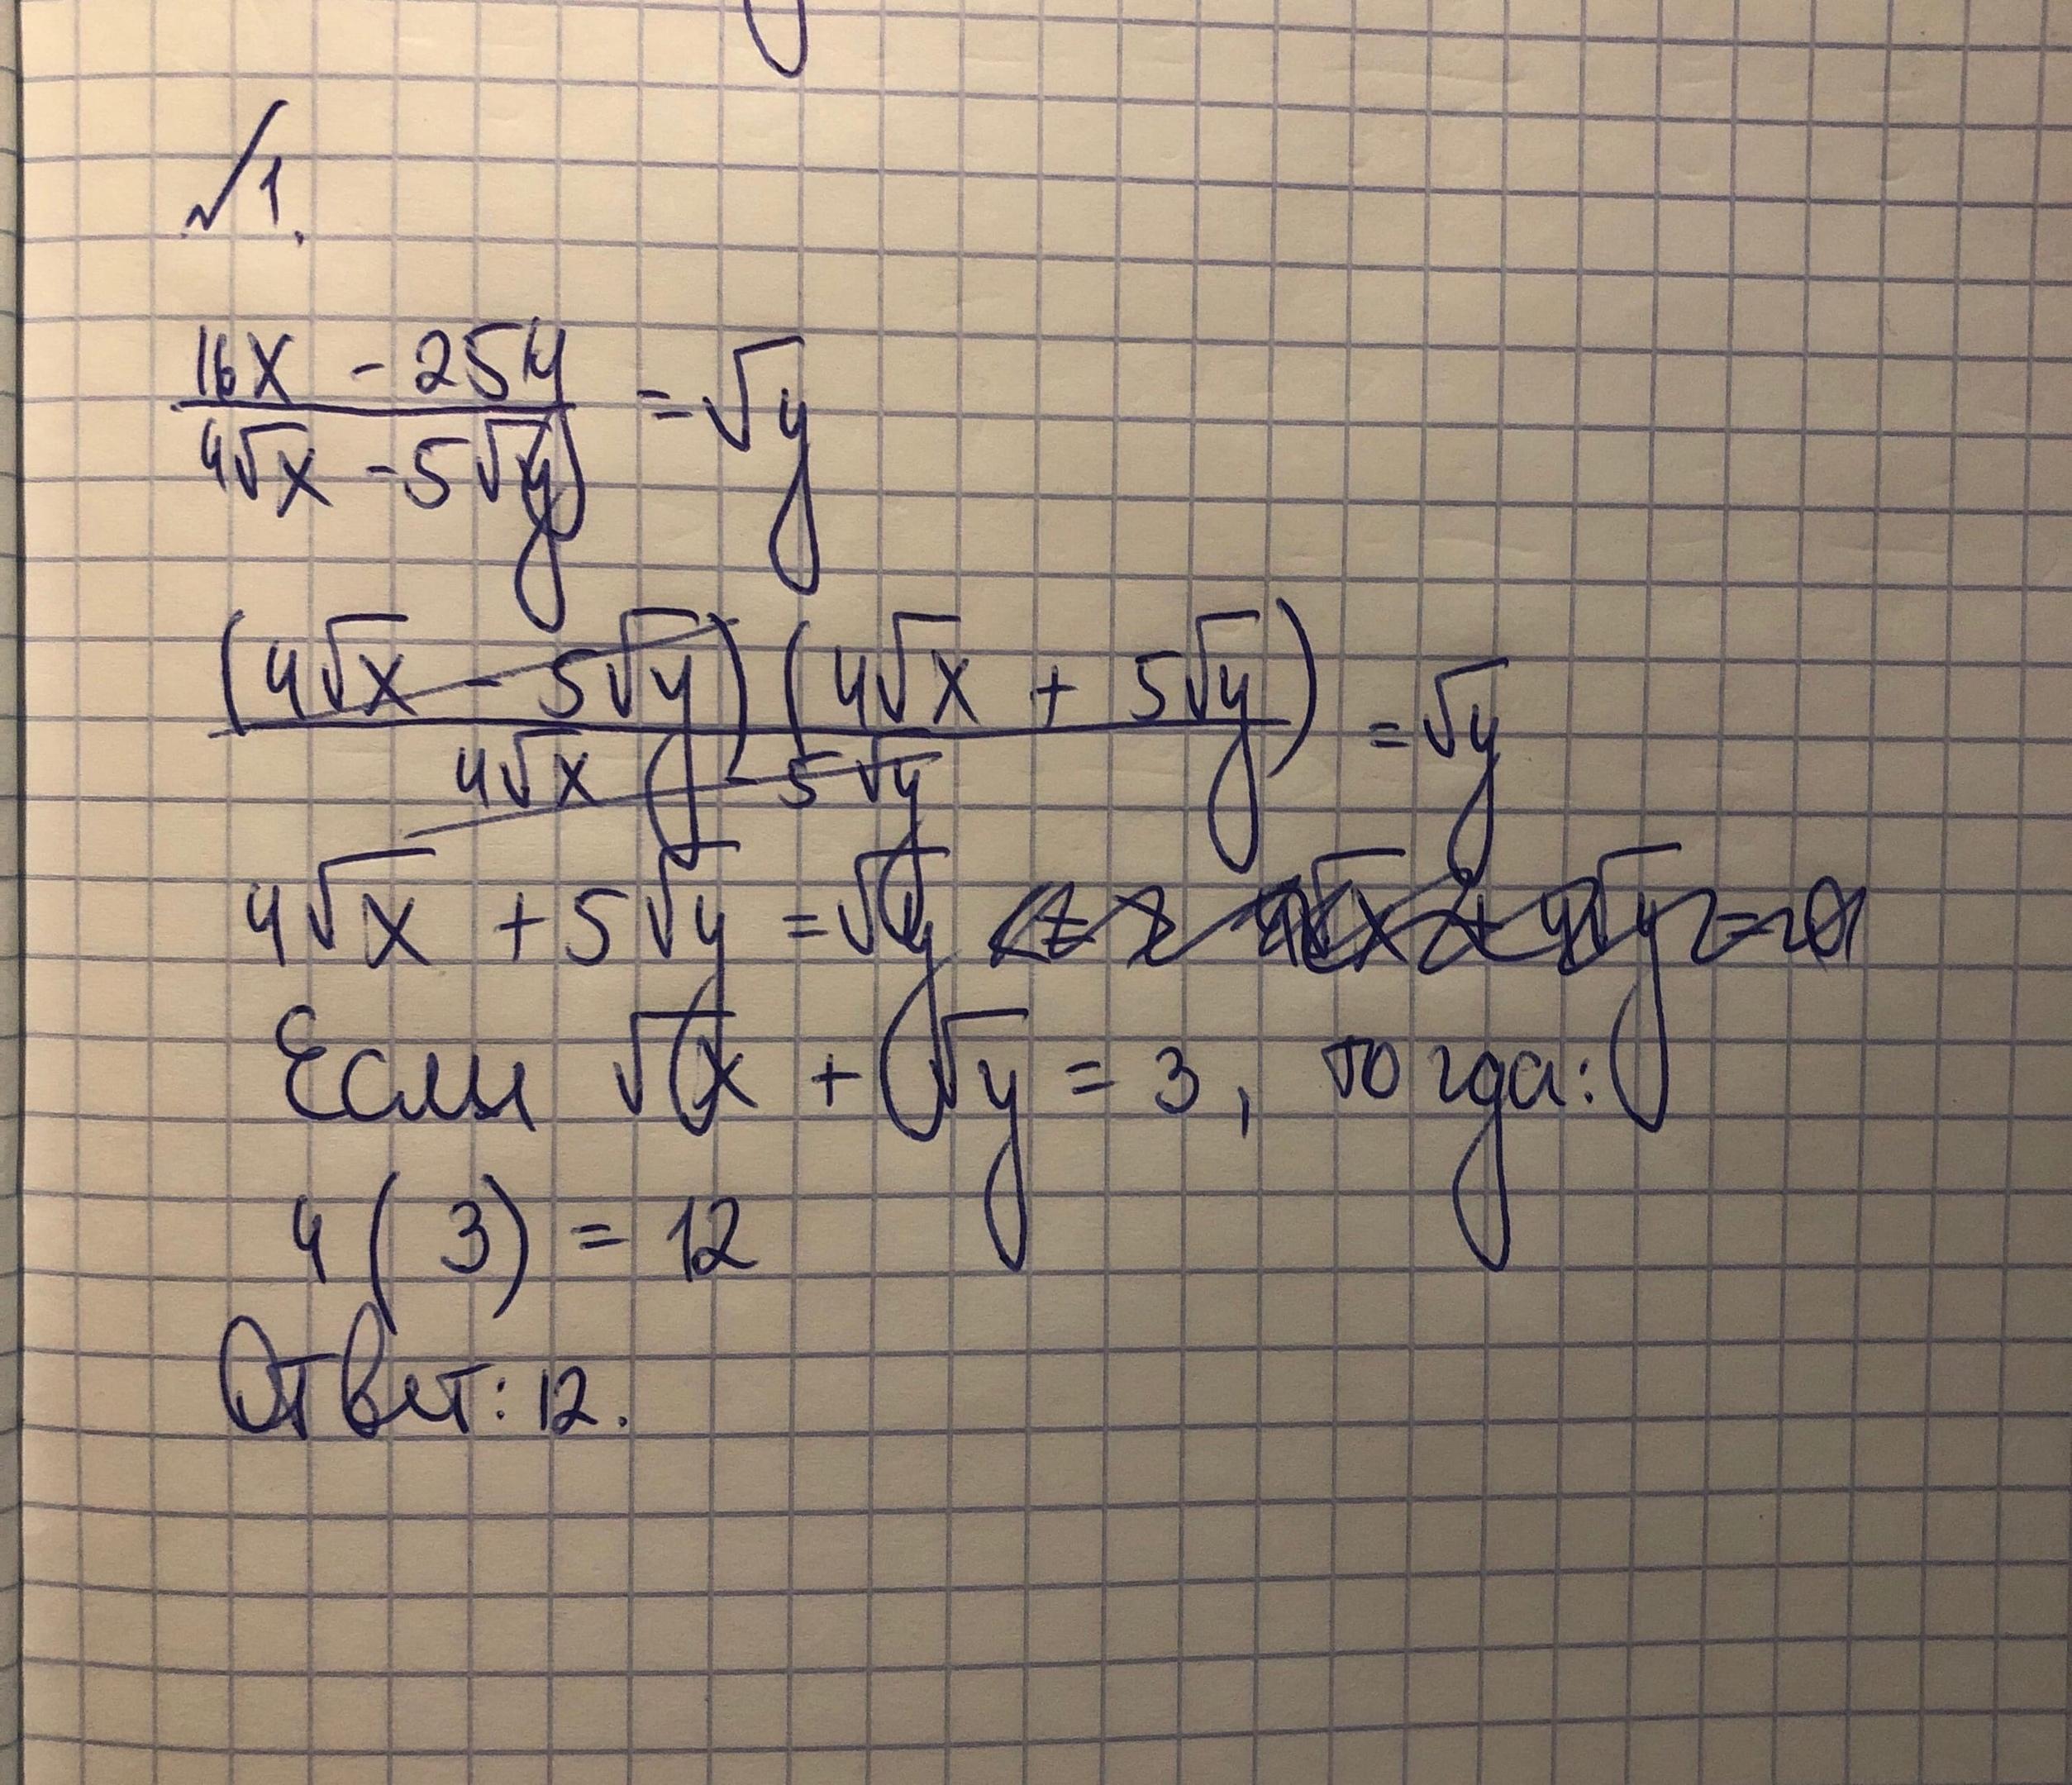 №1.
16x - 25y / 4√x - 5√y = √y
(4√x - 5√y)(4√x + 5√y) / 4√x - 5√y = √y
4√x + 5√y = √y
Если √x + √y = 3, тогда:
4(3) = 12
Ответ: 12.